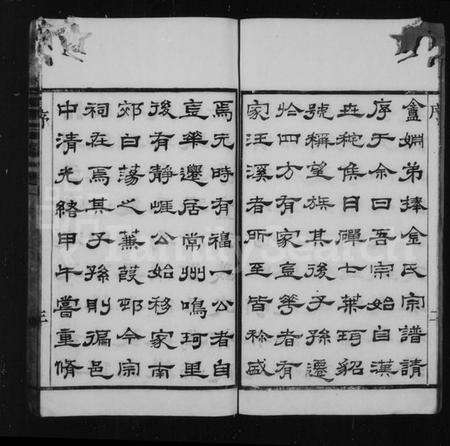 序
盦姻弟捧金氏宗譜請
序于余曰吾宗始自漢
世秺侯日磾七葉珥貂
號稱望族其後子孫遷
恰四方有家宜華者有
家汪溪者所至皆称盛
二
焉元時有福一公者自
宜華遷居常州鳴珂里
後有靜崕公始移家南
郊白蕩之蒹葭邨今宗
祠在焉其子孫則徧邑
中清光緒甲午嘗重脩
序
三